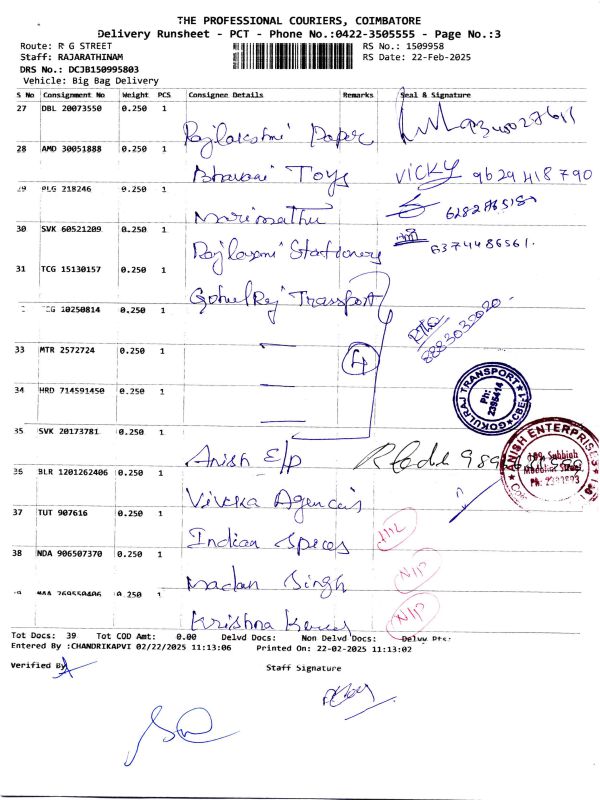 THE PROFESSIONAL COURIERS, COIMBATORE
Delivery Runsheet - PCT - Phone No.:0422-3505555 - Page No.:3
Route: R G STREET
RS No.: 1509958
Staff: RAJARATHINAM
RS Date: 22-Feb-2025
DRS No.: DCJB150995803
Vehicle: Big Bag Delivery
S No Consignment No Weight PCS Consignee Details Remarks Seal & Signature
27 DBL 20073550 0.250 1
Rajlakshmi Paper
28 AMD 30051888 0.250 1
Bhavani Toys VICKY 9629418790
29 PLG 218246 0.250 1
Marimathu
30 SVK 60521209 0.250 1
Rajlaxmi Stationery 6374486561.
31 TCG 15130157 0.250 1
GokulRaj Transport
TCG 10250814 0.250 1
8883030020
33 MTR 2572724 0.250 1
4
34 HRD 714591450 0.250 1
GOKULRAJ TRANSPORT CBE-1
Ph: 2395414
35 SVK 20173781 0.250 1
Anish E/p
ANISH ENTERPRISES
36 BLR 1201262406 0.250 1
Viveka Agencies
37 TUT 907616 0.250 1
Indian Spices
38 NDA 906507370 0.250 1
Madan Singh N/P
0.250 1
Krishna N/P
Tot Docs: 39 Tot COD Amt: 0.00 Delvd Docs: Non Delvd Docs: Delvy Pts:
Entered By :CHANDRIKAPVI 02/22/2025 11:13:06 Printed On: 22-02-2025 11:13:02
Verified By
Staff Signature